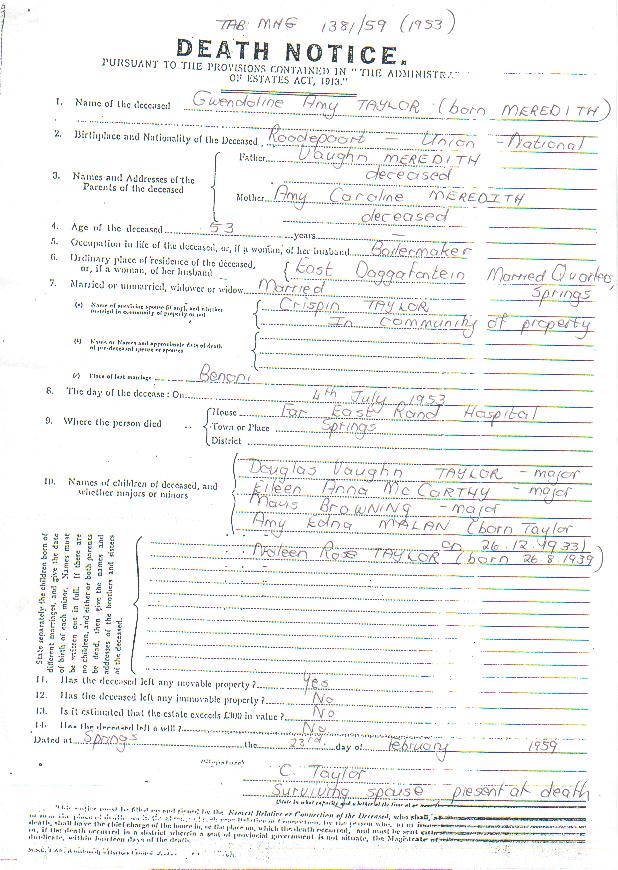 TAB: MHG 1381/59 (1953)
DEATH NOTICE.
PURSUANT TO THE PROVISIONS CONTAINED IN "THE ADMINISTRA
OF ESTATES ACT, 1913."
1. Name of the deceased Gwendoline Amy TAYLOR (born MEREDITH)
2. Birthplace and Nationality of the Deceased Roodepoort - Union - National
Father Vaughn MEREDITH
deceased
3. Names and Addresses of the Parents of the deceased
Mother Amy Caroline MEREDITH
deceased
4. Age of the deceased 53 years -
5. Occupation in life of the deceased, or, if a woman, of her husband Boilermaker
6. Ordinary place of residence of the deceased, or, if a woman, of her husband East Daggafontein Married Quarters,
Springs
7. Married or unmarried, widower or widow Married
(a) Name of surviving spouse (if any), and whether married in community of property or not Crispin TAYLOR
In community of property
(b) Name or Names and approximate date of death of pre-deceased spouse or spouses
(c) Place of last marriage Benoni
8. The day of the decease: On 4th July 1953
9. Where the person died House Far East Rand Hospital
Town or Place Springs
District
10. Names of children of deceased, and whether majors or minors
Douglas Vaughn TAYLOR - major
Eileen Anna McCARTHY - major
Mavis BROWNING - major
Amy Edna MALAN (born Taylor
on 26.12.1933)
Noleen Rose TAYLOR (born 26.8.1939)
State separately the children born of
different marriages, and give the date
of birth of each minor. Names must
be written out in full. If there are
no children, and either or both parents
be dead, then give the names and
addresses of the brothers and sisters
of the deceased.
11. Has the deceased left any movable property? Yes
12. Has the deceased left any immovable property? No
13. Is it estimated that the estate exceeds £300 in value? No
14. Has the deceased left a will? No
Dated at Springs the 23rd day of February 1959
(Signature)
C. Taylor
Surviving spouse present at death
This notice must be filled up and signed by the Nearest Relative or Connection of the Deceased, who shall
death, shall have the chief charge of the house in, or the place on, which the death occurred, and must be sent
or, if the death occurred in a district wherein a seat of provincial government is not situate, the Magistrate of
duplicate, within fourteen days of the death.